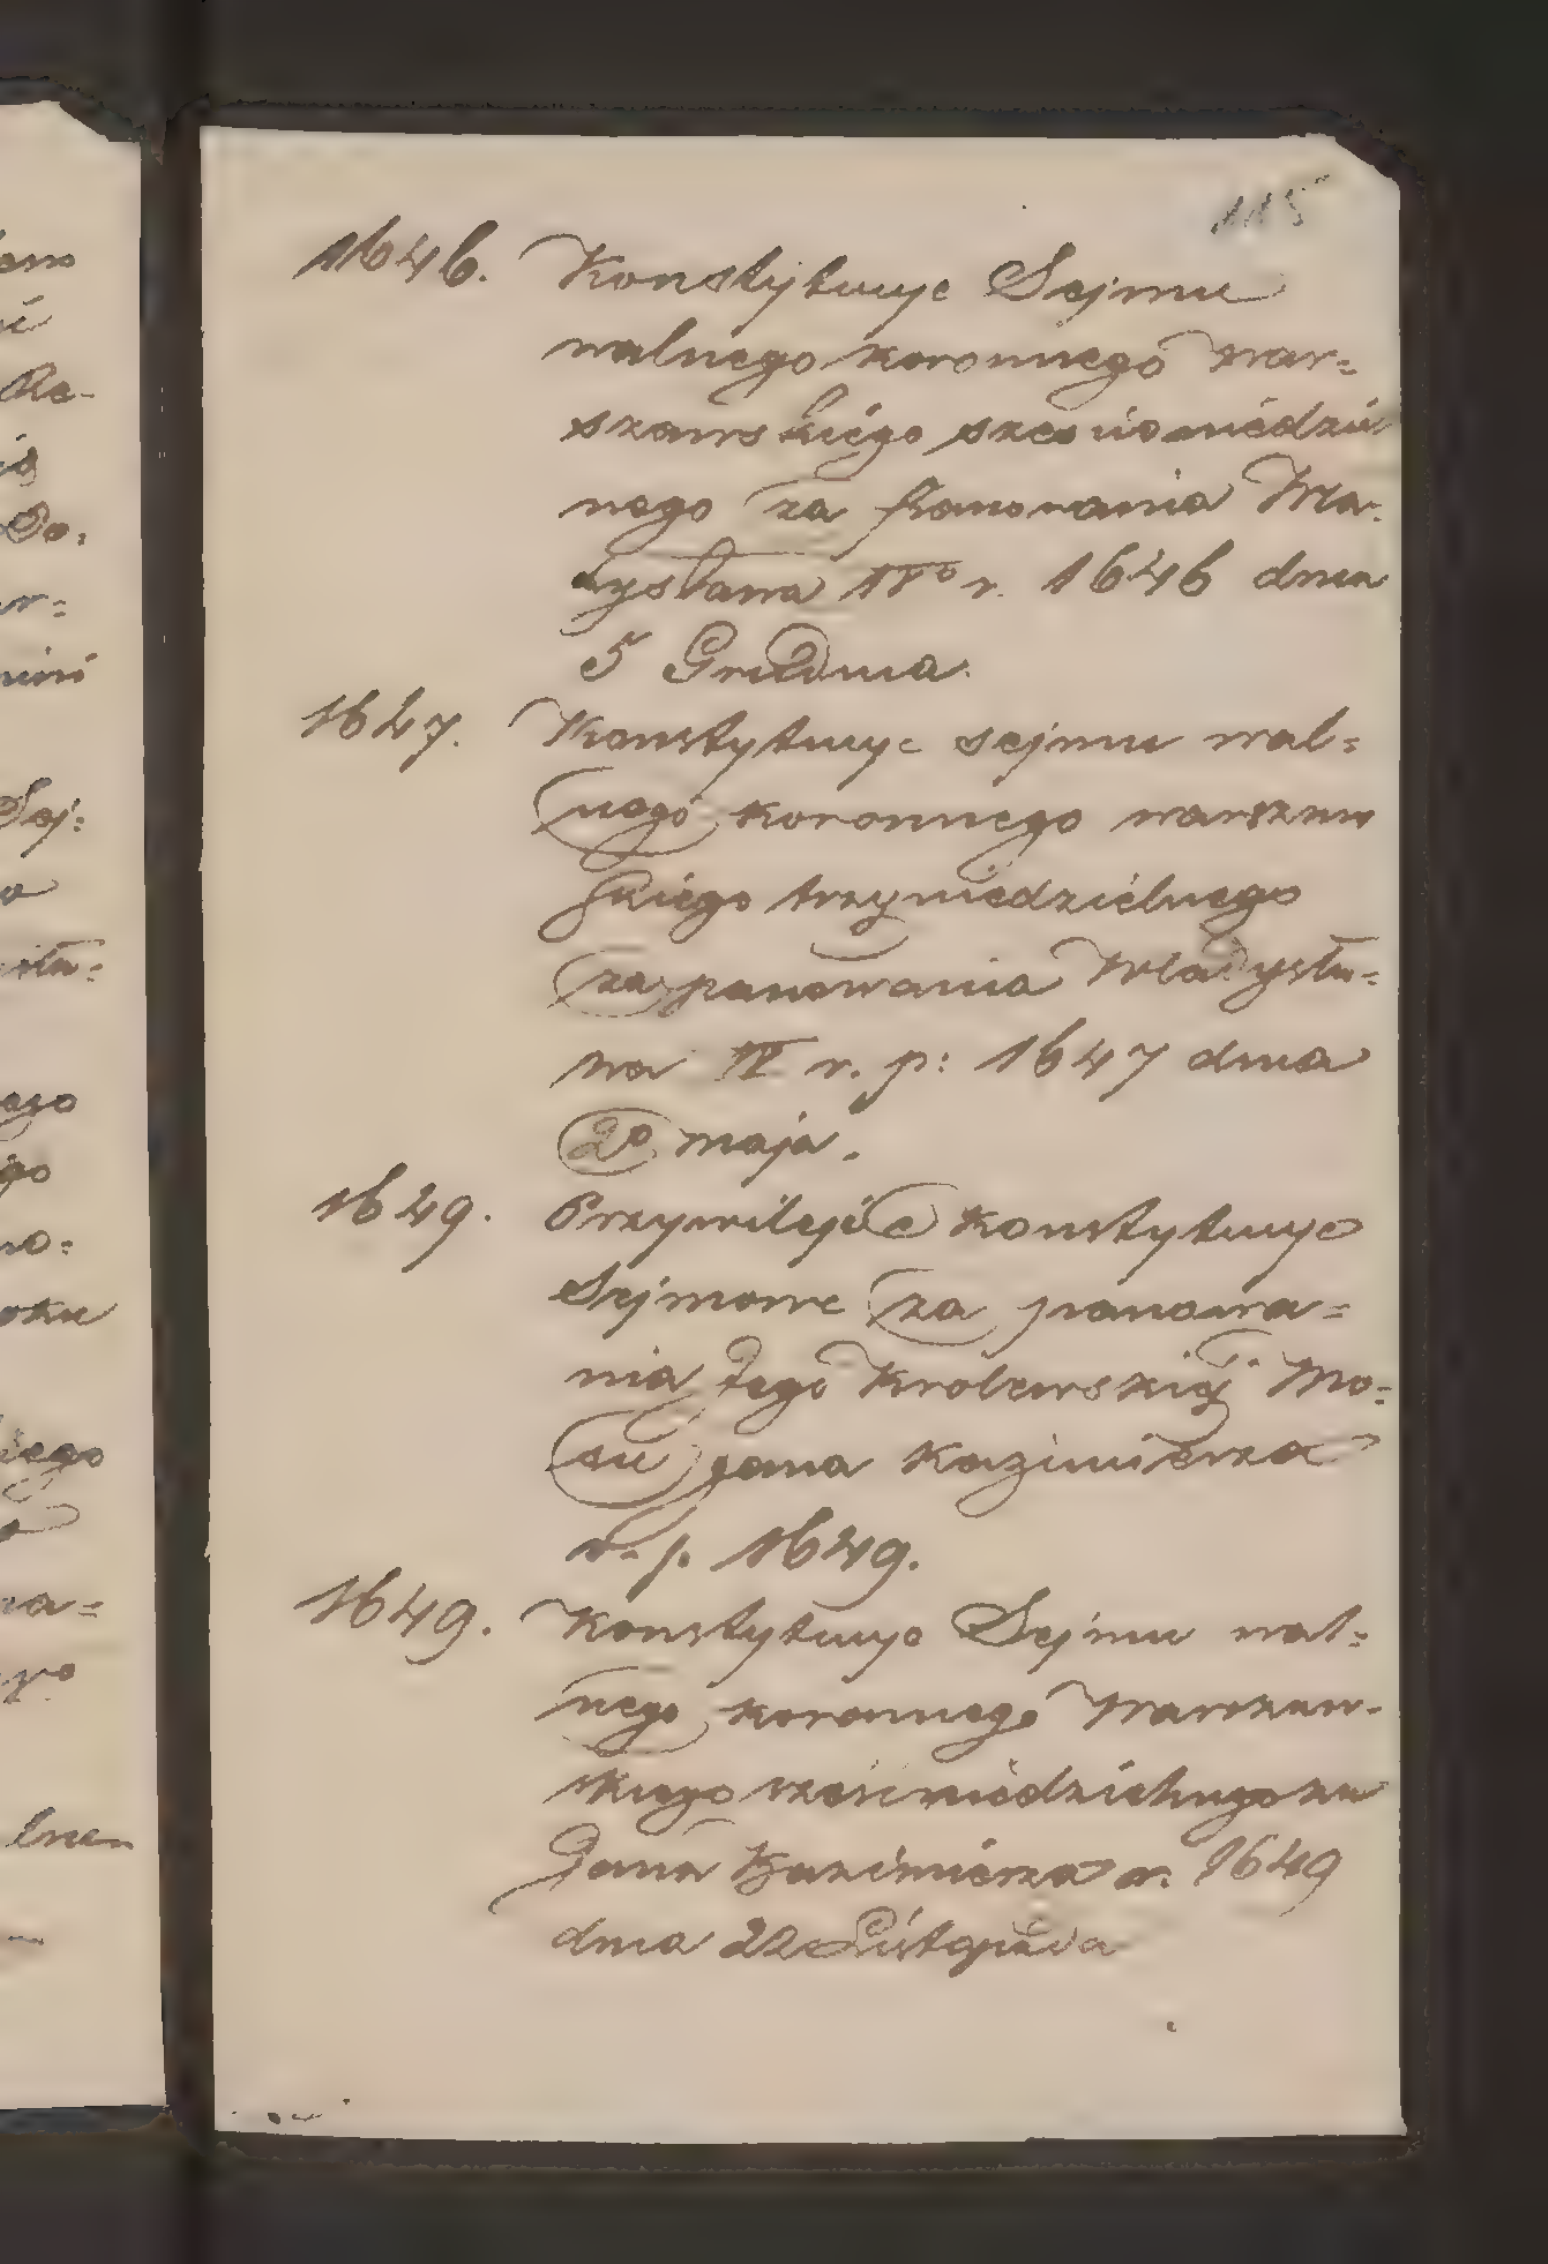 115
1646. Konstytucye Sejmu
walnego koronnego War=
szawskiego sześcioniedziel
nego za panowania Wła=
dysława IVº r. 1646 dnia
5 Grudnia.
1647. Konstytucye sejmu wal=
nego koronnego warszaw
skiego trzyniedzielnego
za panowania Władysła=
wa IV r. p: 1647 dnia
20 maja.
1649. Przywileje i Konstytucye
Sejmowe za panowa=
nia Jego Królewskiej Mo=
ści Jana Kazimierza
r. p. 1649.
1649. Konstytucye Sejmu wal=
nego koronnego Warszaw-
skiego sześcniedzielnego za
Jana Kazimierza r. 1649
dnia 22 Listopada